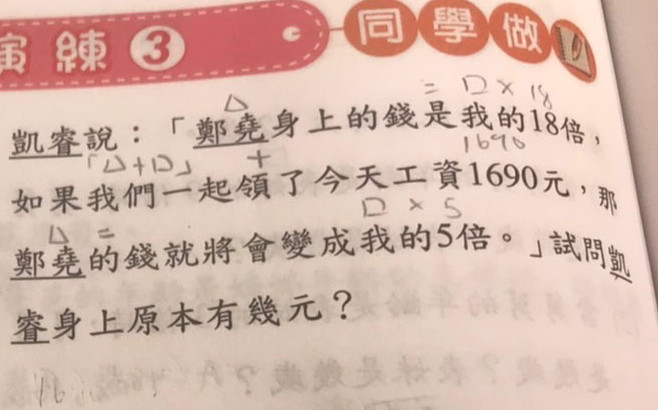 演練3 同學做
△ = □ × 18
凱睿說：「鄭堯身上的錢是我的18倍，
「△+□」 + 1690
如果我們一起領了今天工資1690元，那
△ = □ × 5
鄭堯的錢就將會變成我的5倍。」試問凱
睿身上原本有幾元？